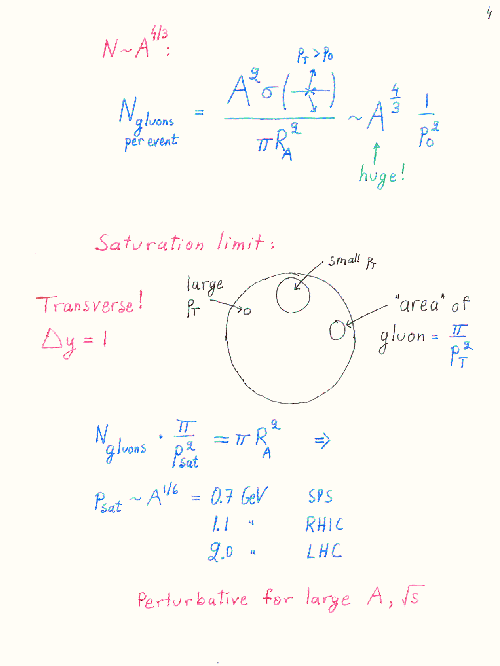 4
N ~ A^{4/3} :
P_T > P_0
N_{gluons per event} = A² σ( ) / π R_A² ~ A^{4/3} 1/P_0²
huge!
Saturation limit:
small P_T
large P_T
Transverse!
Δy = 1
"area" of
gluon = π/P_T²
N_{gluons} · π/P_{sat}² = π R_A² ⇒
P_{sat} ~ A^{1/6} = 0.7 GeV SPS
1.1 " RHIC
2.0 " LHC
Perturbative for large A, √s